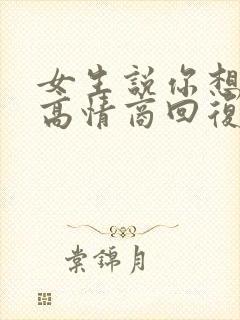 女生說你想
高情商回復
棠錦月